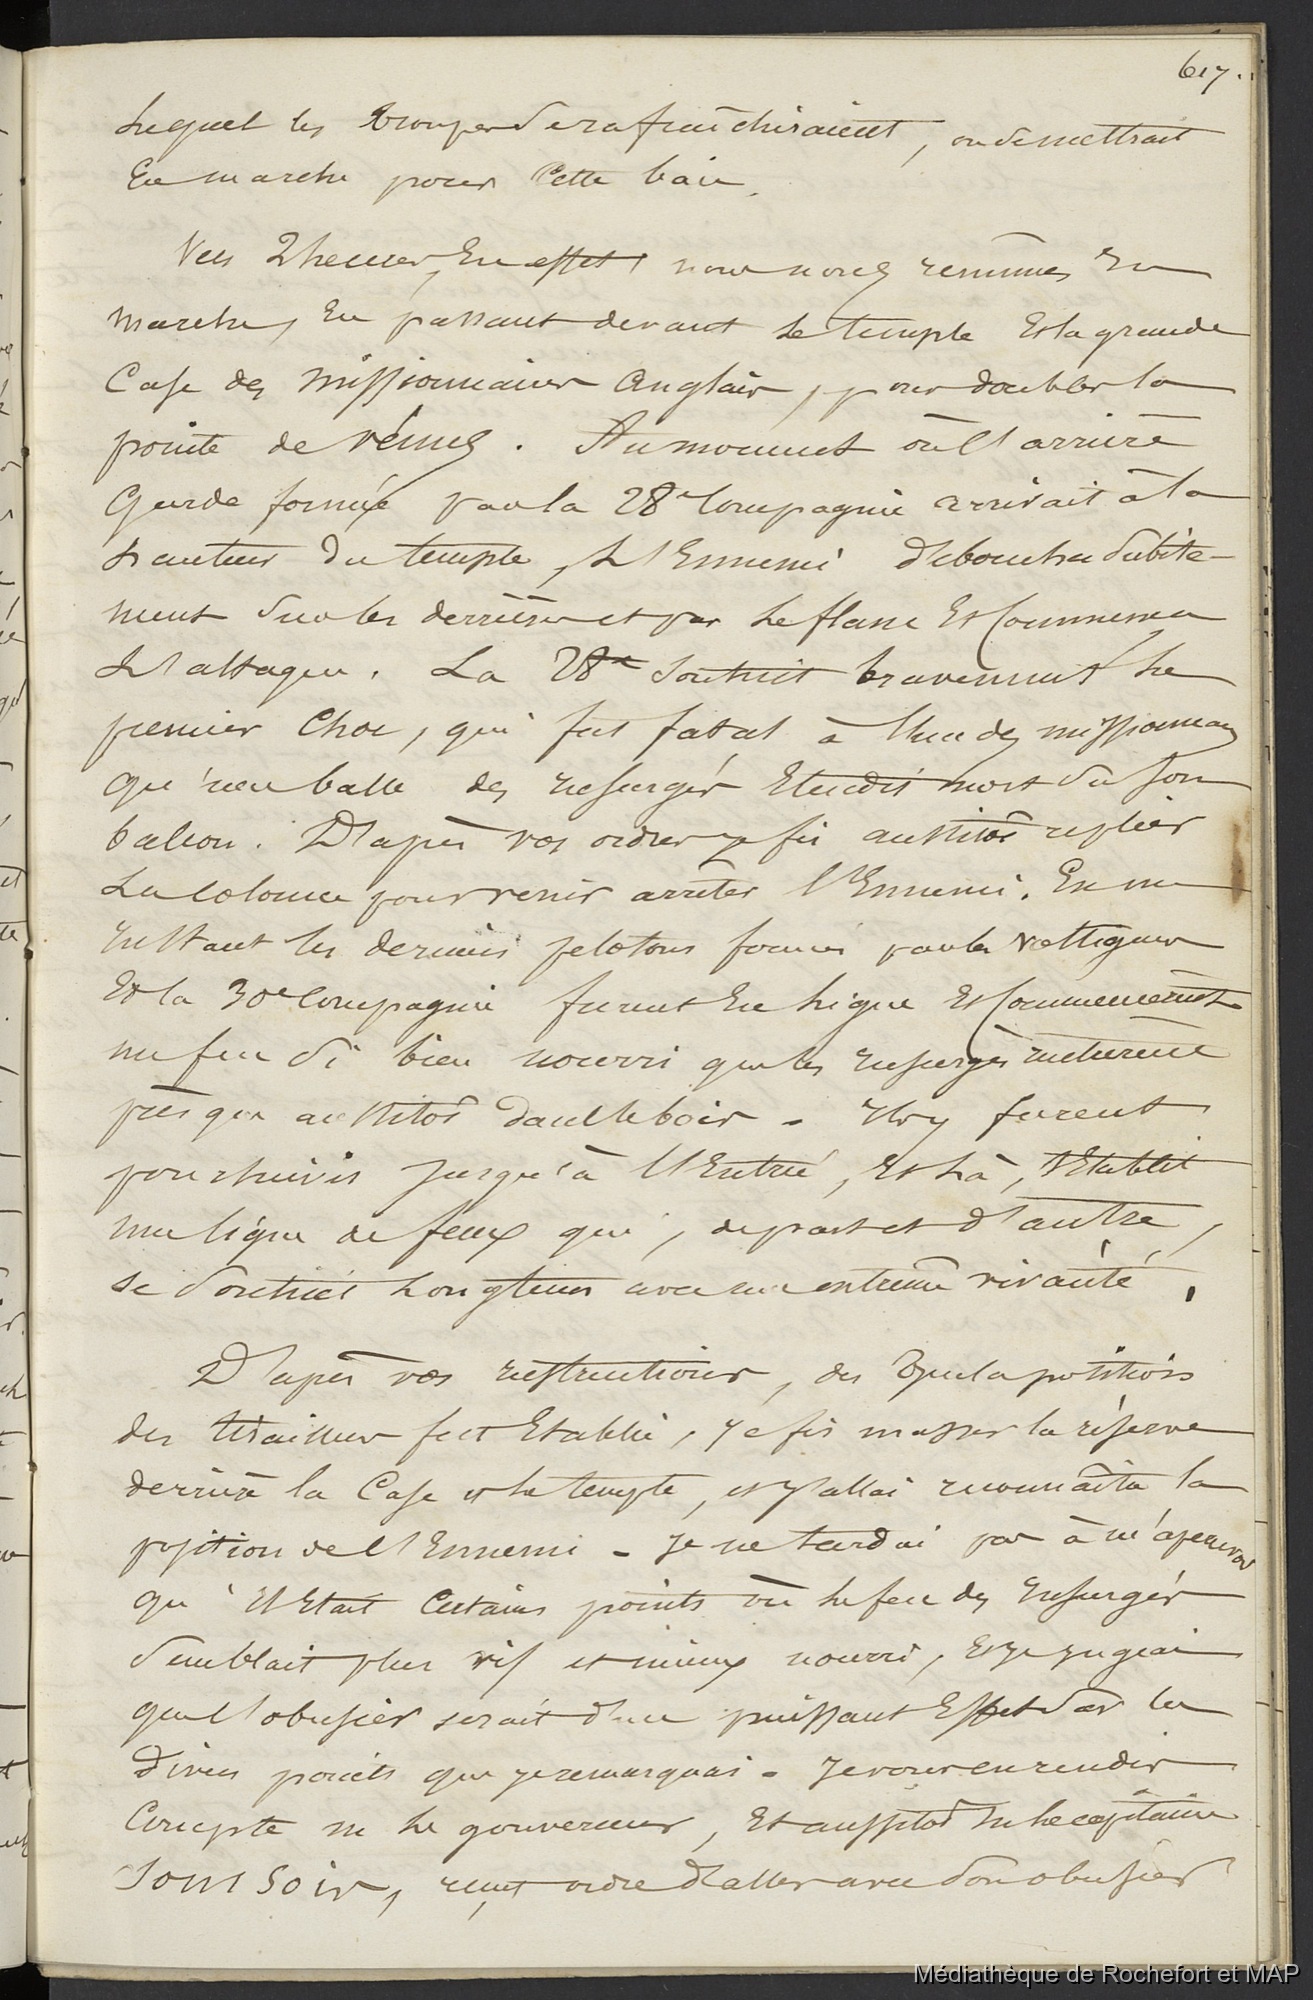 617.
lequel les troupes se rafraîchiraient, on se mettrait
En marche pour Cette baie.
Vers 2 heures, En effet, nous nous remîmes En
marche, En passant devant le temple Et la grande
Case des missionnaires anglais, pour doubler la
pointe de Vénus. Au moment où l'arrière
Garde formée par la 28e Compagnie arrivait à la
hauteur du temple, l'Ennemi déboucha subite-
ment sur les derrières et par le flanc Et Commença
l'attaque. La 28e soutint bravement le
premier Choc, qui fut fatal à l'un des missionnaires
qu'une balle des insurgés Etendit mort sur son
balcon. D'après vos ordres je fis aussitôt replier
la colonne pour venir arrêter l'Ennemi. En un
instant les derniers pelotons formés par les voltigeurs
Et la 30e Compagnie furent En ligne Et Commencèrent
un feu si bien nourri que les insurgés rentrèrent
presque aussitôt dans le bois. Ils y furent
poursuivis jusqu'à l'Entrée, Et là, s'Etablit
une ligne de feux qui, de part et d'autre,
se soutint longtems avec une extrême vivacité.
D'après vos instructions, dès que la position
des tirailleurs fut Etablie, je fis masser la réserve
derrière la Case et le temple, et j'allai reconnaître la
position de l'Ennemi. Je ne tardai pas à m'apercevoir
qu'il Etait Certains points où le feu des Insurgés
semblait plus vif et mieux nourri, Et je jugeai
que l'obusier serait d'un puissant Effet sur les
divers points que je remarquai. Je vous en rendis
Compte M. le gouverneur, Et aussitôt M. le capitaine
Somsois, reçut ordre d'aller avec son obusier
Médiathèque de Rochefort et MAP